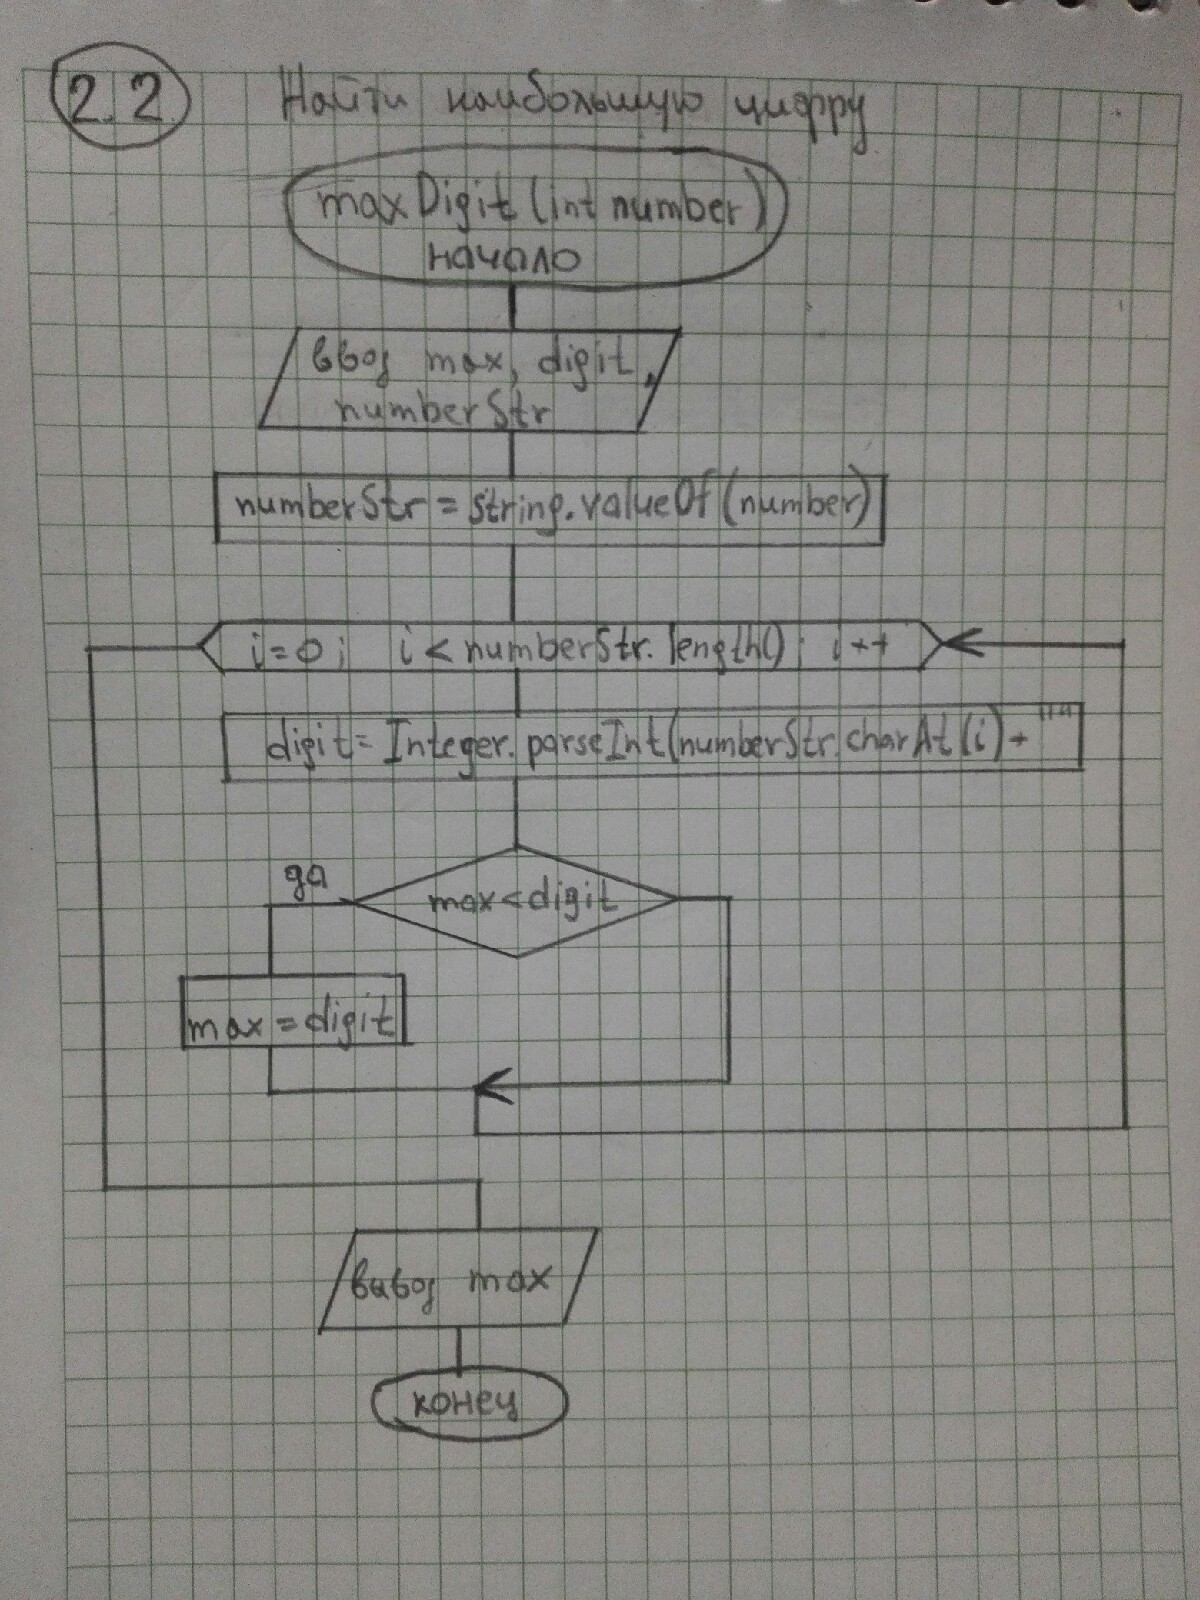 2.2 Найти наибольшую цифру
maxDigit(int number)
начало
ввод max, digit,
numberStr
numberStr = string.valueOf(number)
i=0; i < numberStr.length(); i++
digit = Integer.parseInt(numberStr.charAt(i) + ""
да
max < digit
max = digit
вывод max
конец